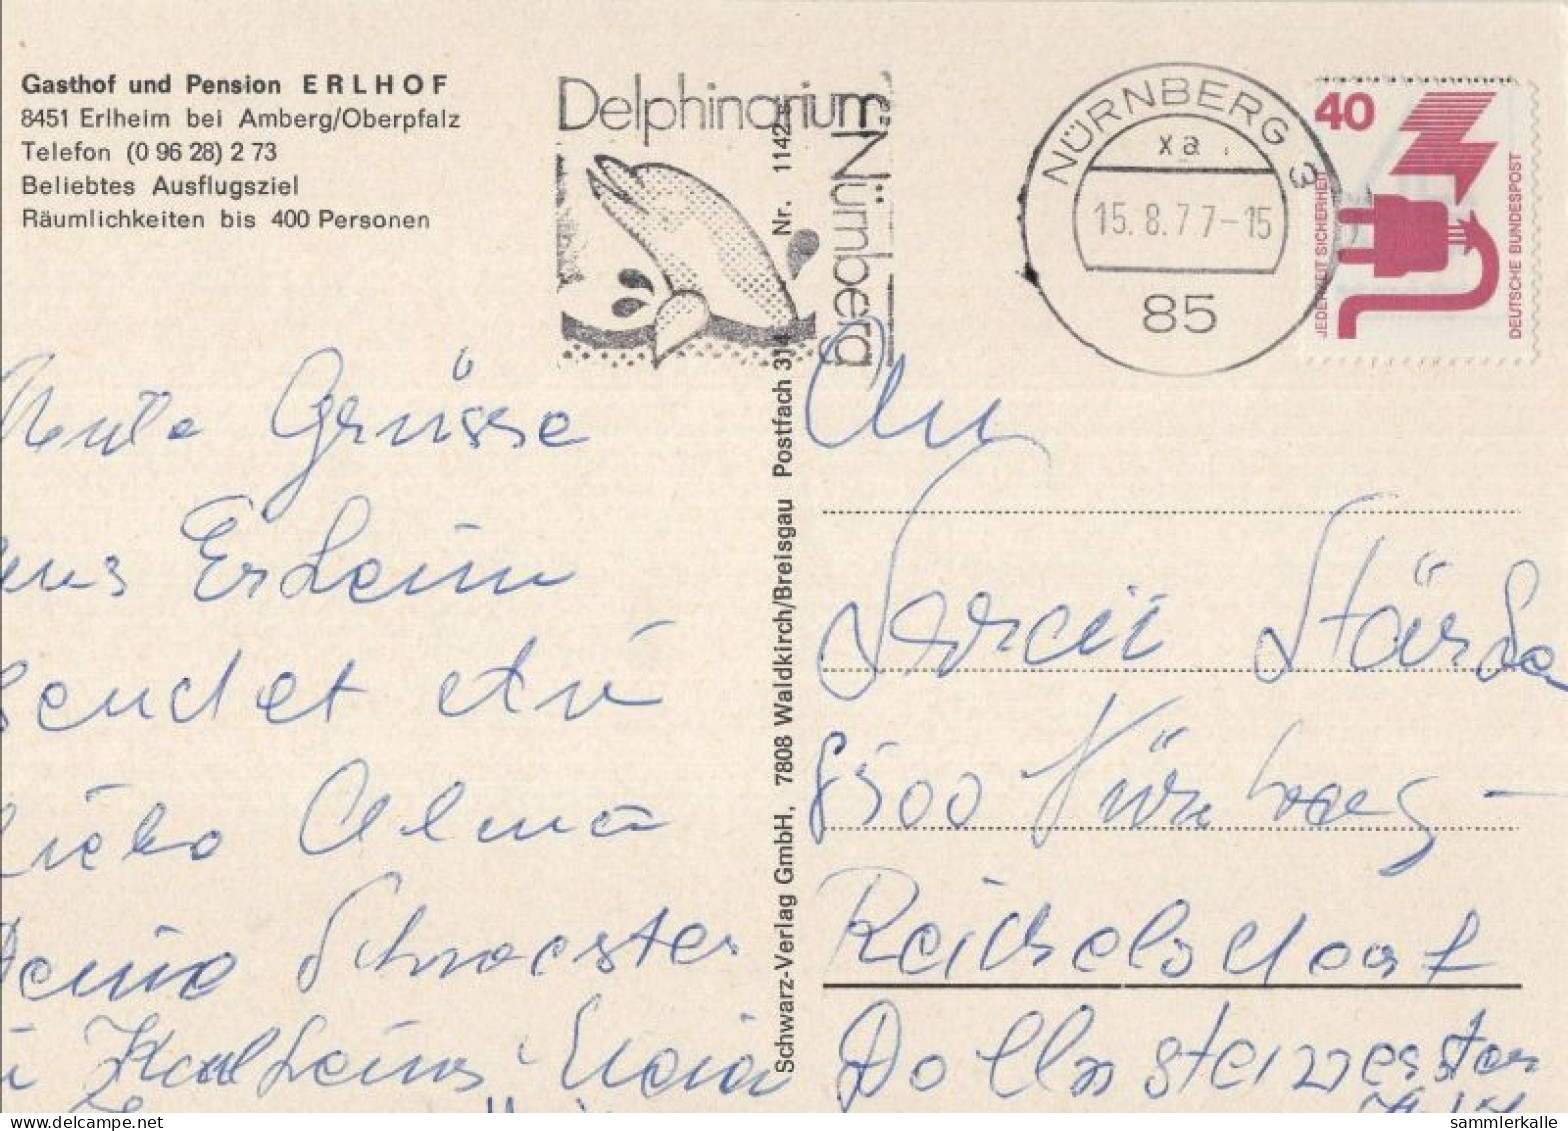 Gasthof und Pension ERLHOF
8451 Erlheim bei Amberg/Oberpfalz
Telefon (0 96 28) 2 73
Beliebtes Ausflugsziel
Räumlichkeiten bis 400 Personen
Delphinarium
Nürnberg
NÜRNBERG 3
xa
15.8.77-15
85
40
JEDERZEIT SICHERHEIT
DEUTSCHE BUNDESPOST
Schwarz-Verlag GmbH, 7808 Waldkirch/Breisgau Postfach 314 Nr. 1142
Grüsse
aus Erlheim
sendet
Schwester
Karlheins
An
8500 Nürnberg -
Reichelsdorf
sammlerkalle.com